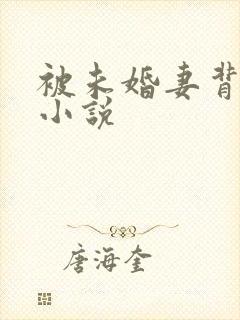 被未婚妻背
小说
唐海奎